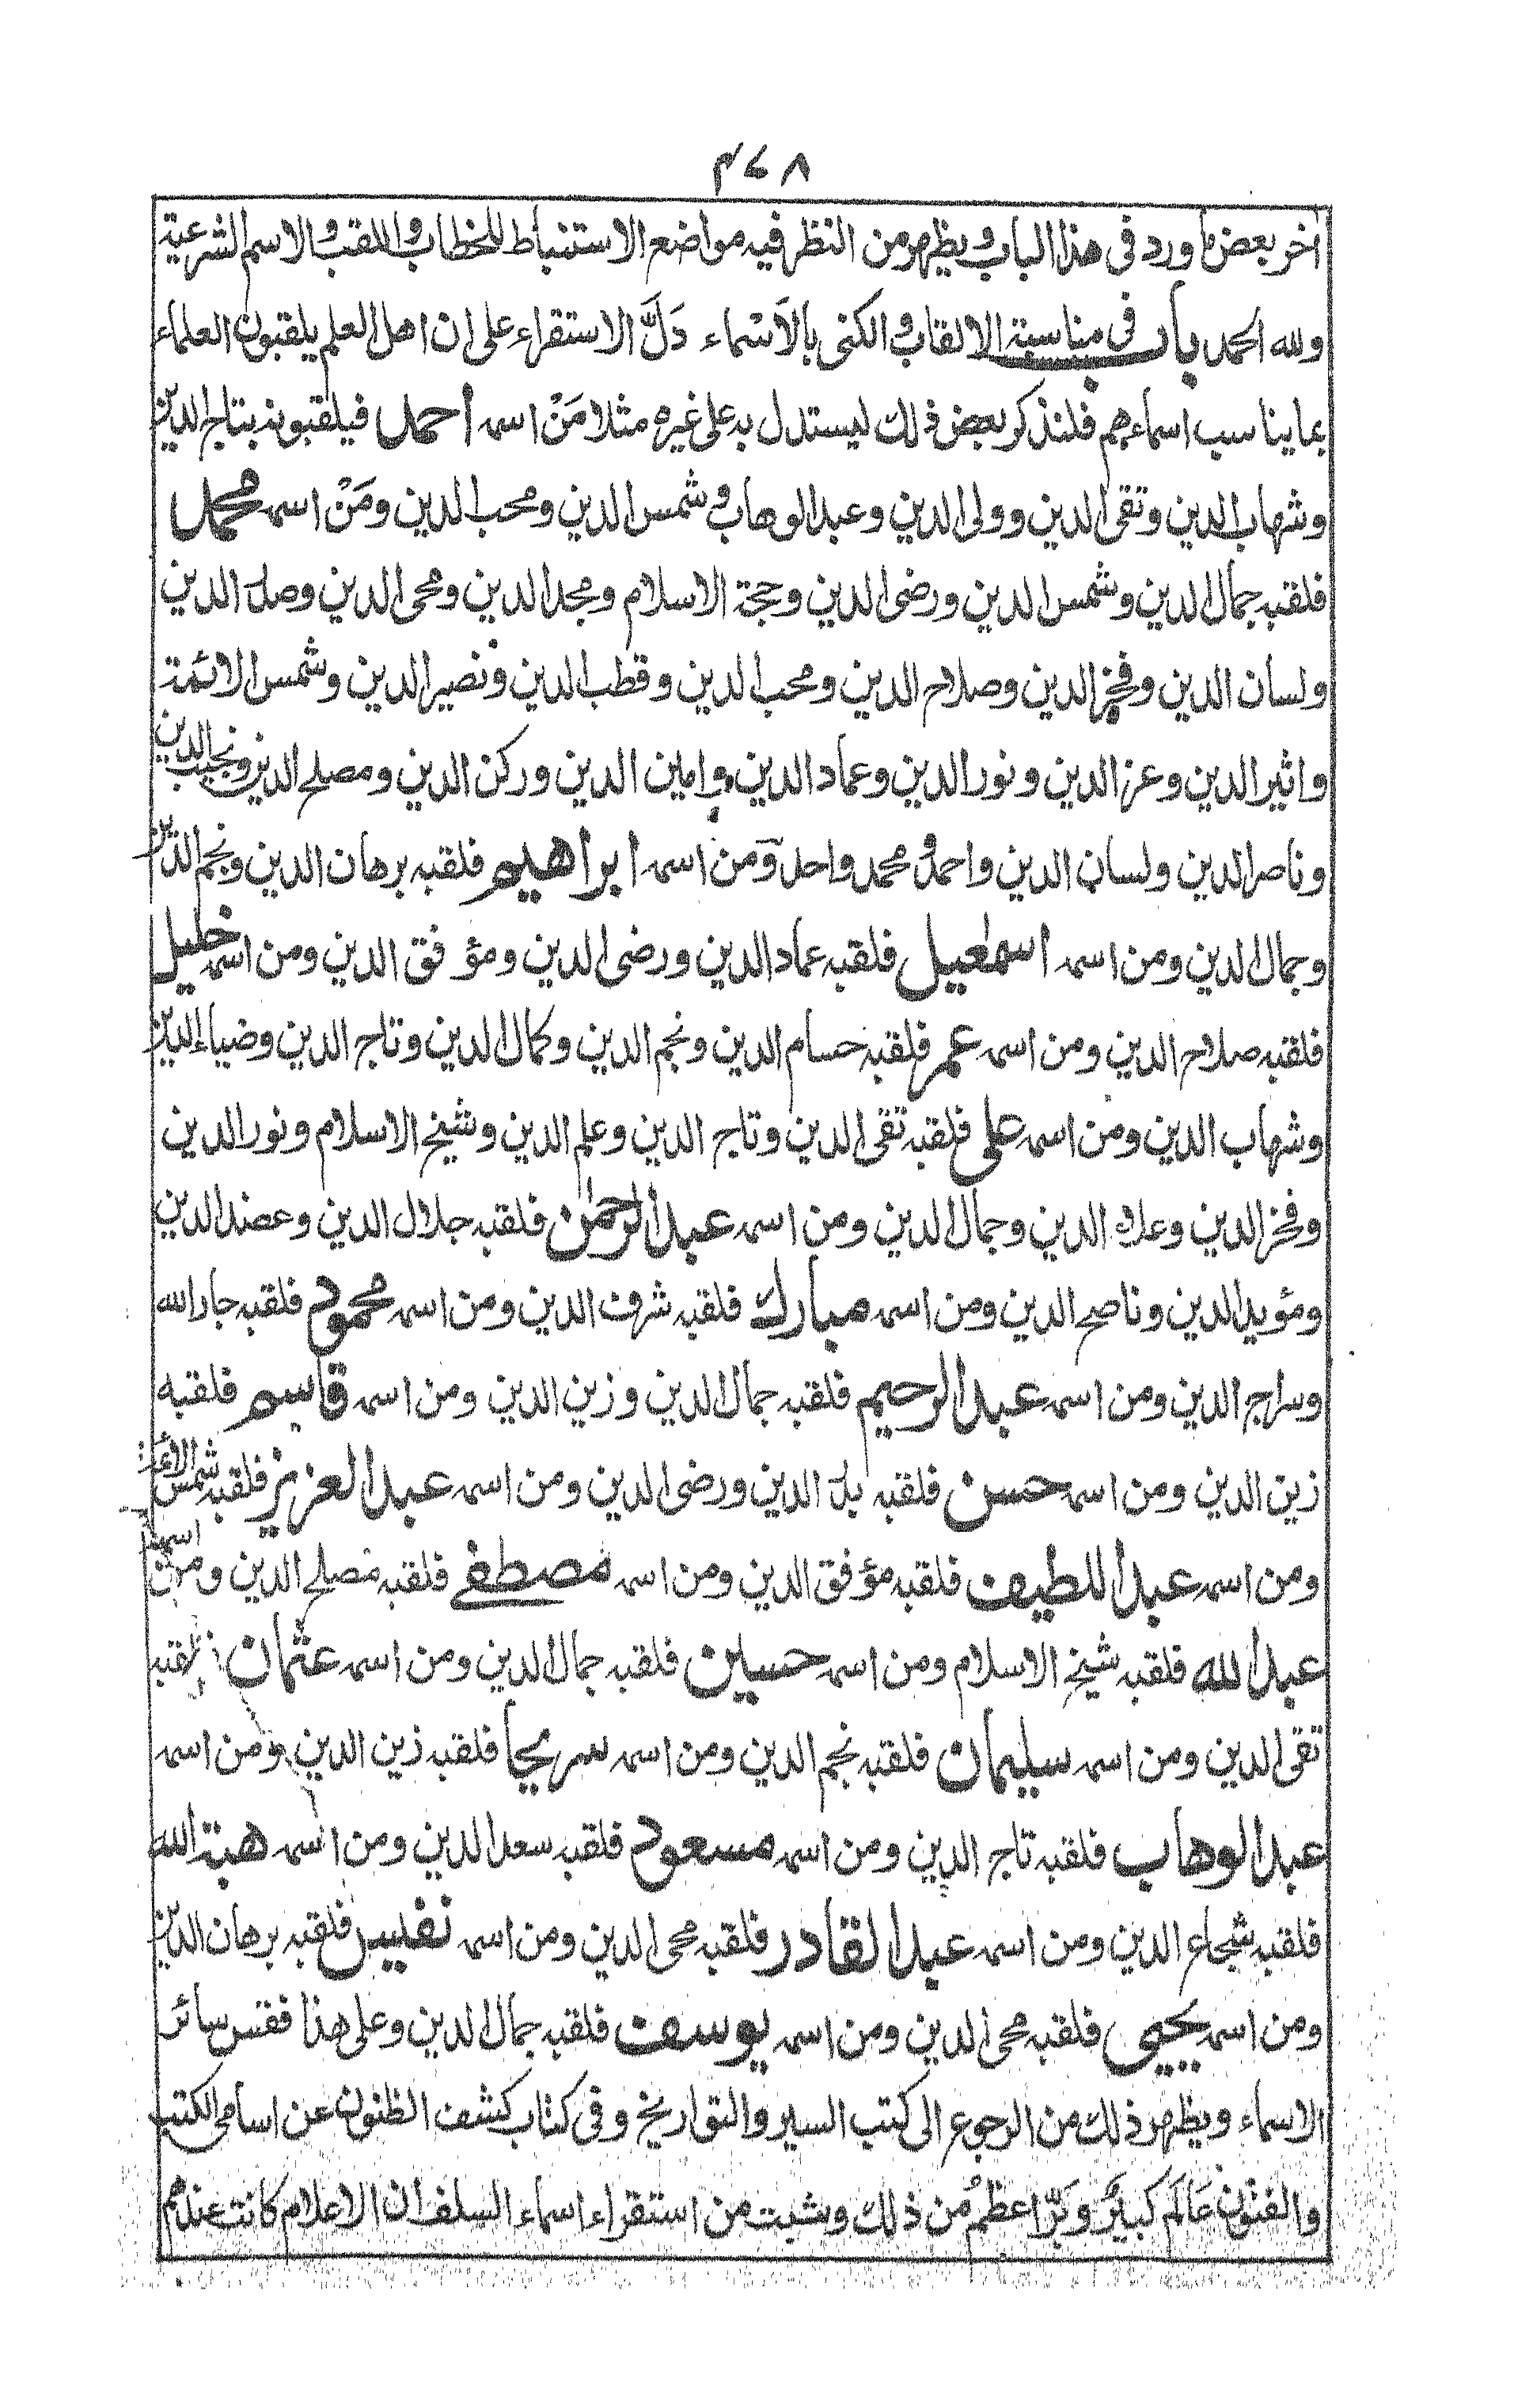 ٤٧٨
اخر بعض ما ورد فى هذا الباب ويظهر من النظر فيه مواضع الاستنباط للخطاب واللقب والاسم الشرعية
ولله الحمد باب فى مناسبة الالقاب والكنى بالاَسْماء دَلَّ الاستقراء على ان اهل العلم يلقبون العلماء
بما يناسب اسماءهم فلنذكر بعض ذلك ليستدل به على غيره مثلا مَنْ اسمه احمد فيلقبونه بتاج الدين
وشهاب الدين وتقى الدين وولى الدين وعبد الوهاب وشمس الدين ومحب الدين ومَنْ اسمه محمد
فلقبه جمال الدين وشمس الدين ورضى الدين وحجة الاسلام ومجد الدين ومحى الدين وصدر الدين
ولسان الدين وفخر الدين وصلاح الدين ومحب الدين وقطب الدين ونصير الدين وشمس الائمة
واثير الدين وعز الدين ونور الدين وعماد الدين وامين الدين وركن الدين ومصلح الدين ونجيب الدين
وناصر الدين ولسان الدين واحمد ومحمد واحد ومن اسمه ابراهيم فلقبه برهان الدين ونجم الدين
وجمال الدين ومن اسمه اسمعيل فلقبه عماد الدين ورضى الدين ومؤفق الدين ومن اسمه خليل
فلقبه صلاح الدين ومن اسمه عمر فلقبه حسام الدين ونجم الدين وكمال الدين وتاج الدين وضياء الدين
وشهاب الدين ومن اسمه على فلقبه تقى الدين وتاج الدين وعلم الدين وشيخ الاسلام ونور الدين
وفخر الدين وعلاء الدين وجمال الدين ومن اسمه عبد الرحمن فلقبه جلال الدين وعضد الدين
ومؤيد الدين وناصح الدين ومن اسمه مبارك فلقبه شرف الدين ومن اسمه محمود فلقبه جار الله
وسراج الدين ومن اسمه عبد الرحيم فلقبه جمال الدين وزين الدين ومن اسمه قاسم فلقبه
زين الدين ومن اسمه حسن فلقبه بدر الدين ورضى الدين ومن اسمه عبد العزيز فلقبه شمس الائمة
ومن اسمه عبد اللطيف فلقبه مؤفق الدين ومن اسمه مصطفے فلقبه مصلح الدين ومن اسمه
عبد الله فلقبه شيخ الاسلام ومن اسمه حسين فلقبه جمال الدين ومن اسمه عثمان فلقبه
تقى الدين ومن اسمه سليمان فلقبه نجم الدين ومن اسمه سريجا فلقبه زين الدين ومن اسمه
عبد الوهاب فلقبه تاج الدين ومن اسمه مسعود فلقبه سعد الدين ومن اسمه هبة الله
فلقبه شجاع الدين ومن اسمه عبد القادر فلقبه محى الدين ومن اسمه نفيس فلقبه برهان الدين
ومن اسمه يحيى فلقبه محى الدين ومن اسمه يوسف فلقبه جمال الدين وعلى هذا فقس سائر
الاسماء ويظهر ذلك من الرجوع الى كتب السير والتواريخ وفى كتاب كشف الظنون عن اسامى الكتب
والفنون عَالَم كبيرٌ وبَرٌّ اعظمُ من ذلك وثبت من استقراء اسماء السلف ان الاعلام كانت عندهم